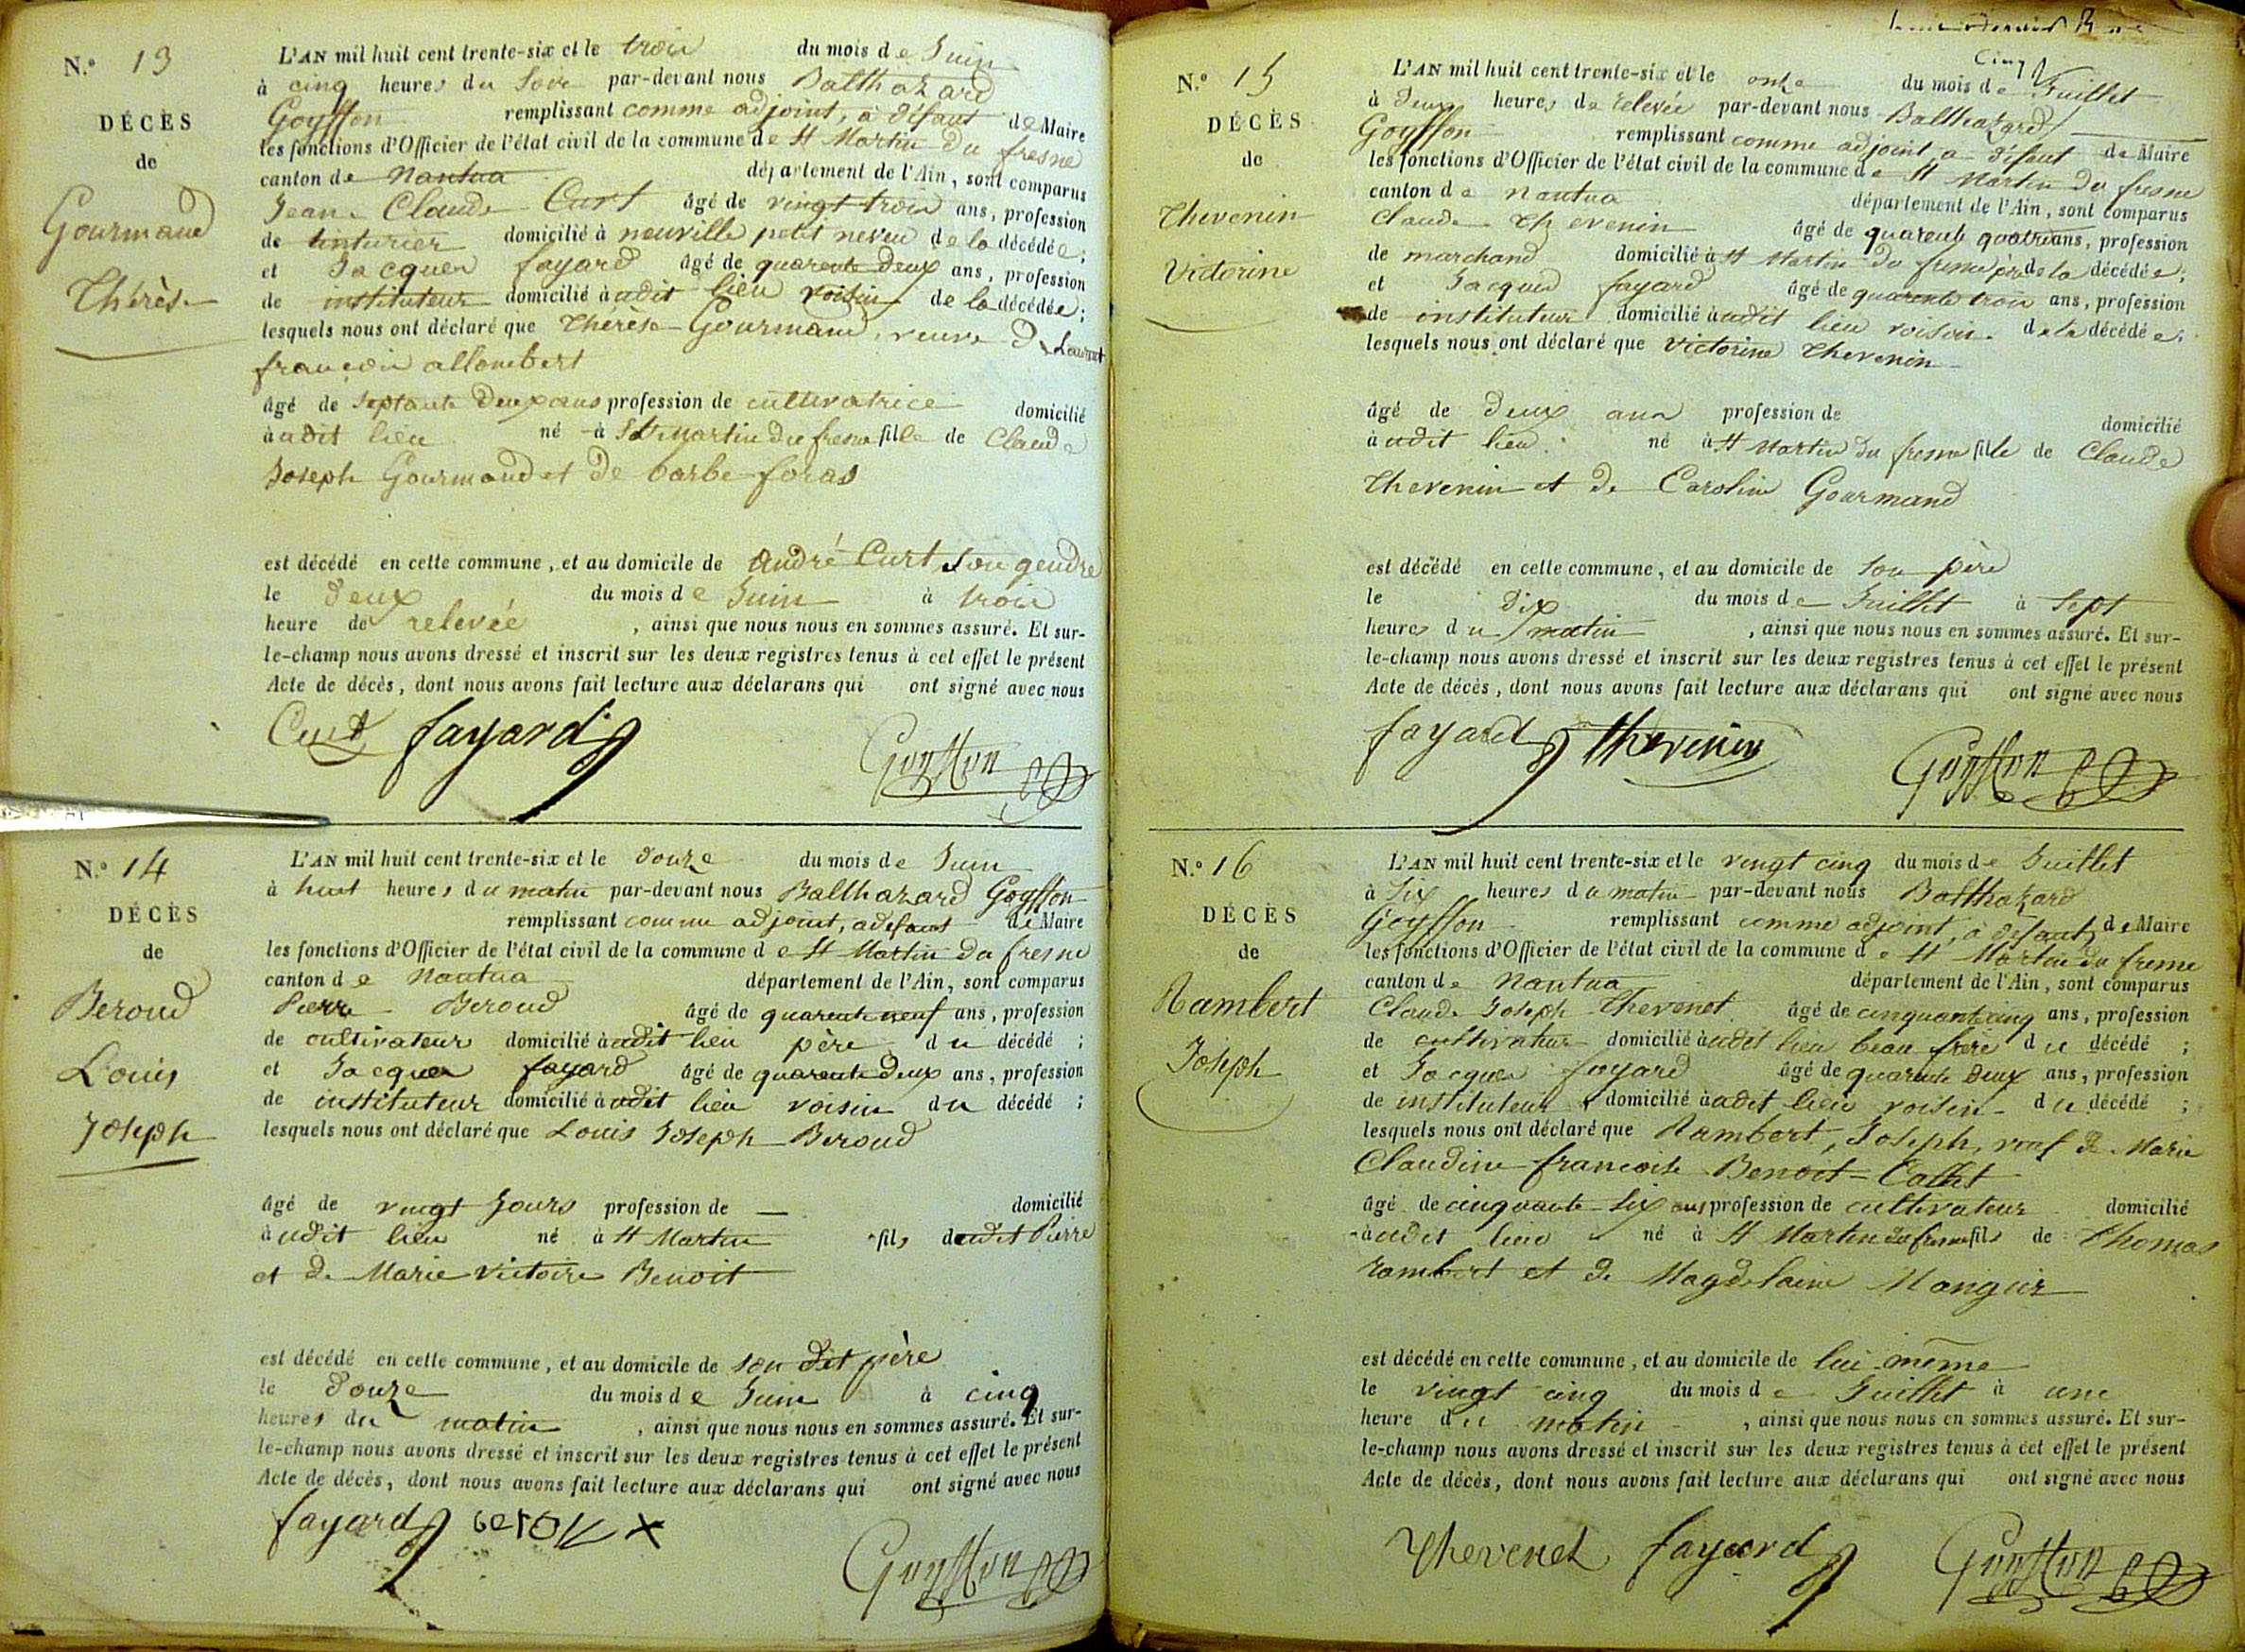 N.º 13
DÉCÈS
de
Gourmand
Thérèse
L'AN mil huit cent trente-six et le trois du mois de Juin
à cinq heures du soir par-devant nous Balthazard
Goyffon remplissant comme adjoint, à défaut de Maire
les fonctions d'Officier de l'état civil de la commune de St Martin du fresne
canton de Nantua département de l'Ain, sont comparus
Jean Claude Curt âgé de vingt trois ans, profession
de tinturier domicilié à neuville petit neveu de la décédée;
et Jacques fayard âgé de quarante deux ans, profession
de instituteur domicilié à udit lieu voisin de la décédée;
lesquels nous ont déclaré que Thérèse Gourmand, veuve de Laurent
françois allombert
âgé de septante deux ans profession de cultivatrice domicilié
à udit lieu né à St Martin du fresne fille de Claude
Joseph Gourmand et de barbe foras
est décédé en cette commune, et au domicile de André Curt, son gendre
le deux du mois de Juin à trois
heure de relevée, ainsi que nous nous en sommes assuré. Et sur-
le-champ nous avons dressé et inscrit sur les deux registres tenus à cet effet le présent
Acte de décès, dont nous avons fait lecture aux déclarans qui ont signé avec nous
Curt fayard Goyffon
N.º 14
DÉCÈS
de
Beroud
Louis
Joseph
L'AN mil huit cent trente-six et le douze du mois de Juin
à huit heures du matin par-devant nous Balthazard Goyffon
remplissant comme adjoint, a defaut de Maire
les fonctions d'Officier de l'état civil de la commune de St Martin du fresne
canton de Nantua département de l'Ain, sont comparus
Pierre Beroud âgé de quarante neuf ans, profession
de cultivateur domicilié à udit lieu père du décédé;
et Jacques fayard âgé de quarante deux ans, profession
de instituteur domicilié à udit lieu voisin du décédé;
lesquels nous ont déclaré que Louis Joseph Beroud
âgé de vingt jours profession de — domicilié
à udit lieu né à St Martin fils dudit Pierre
et de Marie Victoire Benoit
est décédé en cette commune, et au domicile de son dit père
le douze du mois de Juin à cinq
heures du matin, ainsi que nous nous en sommes assuré. Et sur-
le-champ nous avons dressé et inscrit sur les deux registres tenus à cet effet le présent
Acte de décès, dont nous avons fait lecture aux déclarans qui ont signé avec nous
fayard Goyffon
Cinq
N.º 15
DÉCÈS
de
Thevenin
Victorine
L'AN mil huit cent trente-six et le onze du mois de Juillet
à deux heures de relevée par-devant nous Balthazard
Goyffon remplissant comme adjoint a défaut de Maire
les fonctions d'Officier de l'état civil de la commune de St Martin du fresne
canton de Nantua département de l'Ain, sont comparus
Claude Thevenin âgé de quarente quatre ans, profession
de marchand domicilié à St Martin du fresne père de la décédée;
et Jacques fayard âgé de quarente trois ans, profession
de instituteur domicilié à udit lieu voisin de la décédée;
lesquels nous ont déclaré que Victorine Thevenin
âgé de deux ans profession de domicilié
à udit lieu né à St Martin du fresne fille de Claude
Thevenin et de Caroline Gourmand
est décédé en cette commune, et au domicile de son père
le dix du mois de Juillet à Sept
heures du matin, ainsi que nous nous en sommes assuré. Et sur-
le-champ nous avons dressé et inscrit sur les deux registres tenus à cet effet le présent
Acte de décès, dont nous avons fait lecture aux déclarans qui ont signé avec nous
fayard Thevenin Goyffon
N.º 16
DÉCÈS
de
Rambert
Joseph
L'AN mil huit cent trente-six et le vingt cinq du mois de Juillet
à Six heures du matin par-devant nous Balthazard
Goyffon remplissant comme adjoint, à défaut, de Maire
les fonctions d'Officier de l'état civil de la commune de St Martin du fresne
canton de Nantua département de l'Ain, sont comparus
Claude Joseph Thevenet âgé de cinquante cinq ans, profession
de cultivateur domicilié à udit lieu beau frère du décédé;
et Jacques fayard âgé de quarante deux ans, profession
de instituteur domicilié à udit lieu voisin du décédé;
lesquels nous ont déclaré que Rambert, Joseph, veuf de Marie
Claudine françoise Benoit-Callet
âgé de cinquante six ans profession de cultivateur domicilié
à udit lieu né à St Martin du fresne fils de Thomas
rambert et de Magdelaine Mangier
est décédé en cette commune, et au domicile de lui même
le vingt cinq du mois de Juillet à une
heure du matin, ainsi que nous nous en sommes assuré. Et sur-
le-champ nous avons dressé et inscrit sur les deux registres tenus à cet effet le présent
Acte de décès, dont nous avons fait lecture aux déclarans qui ont signé avec nous
Thevenet fayard Goyffon